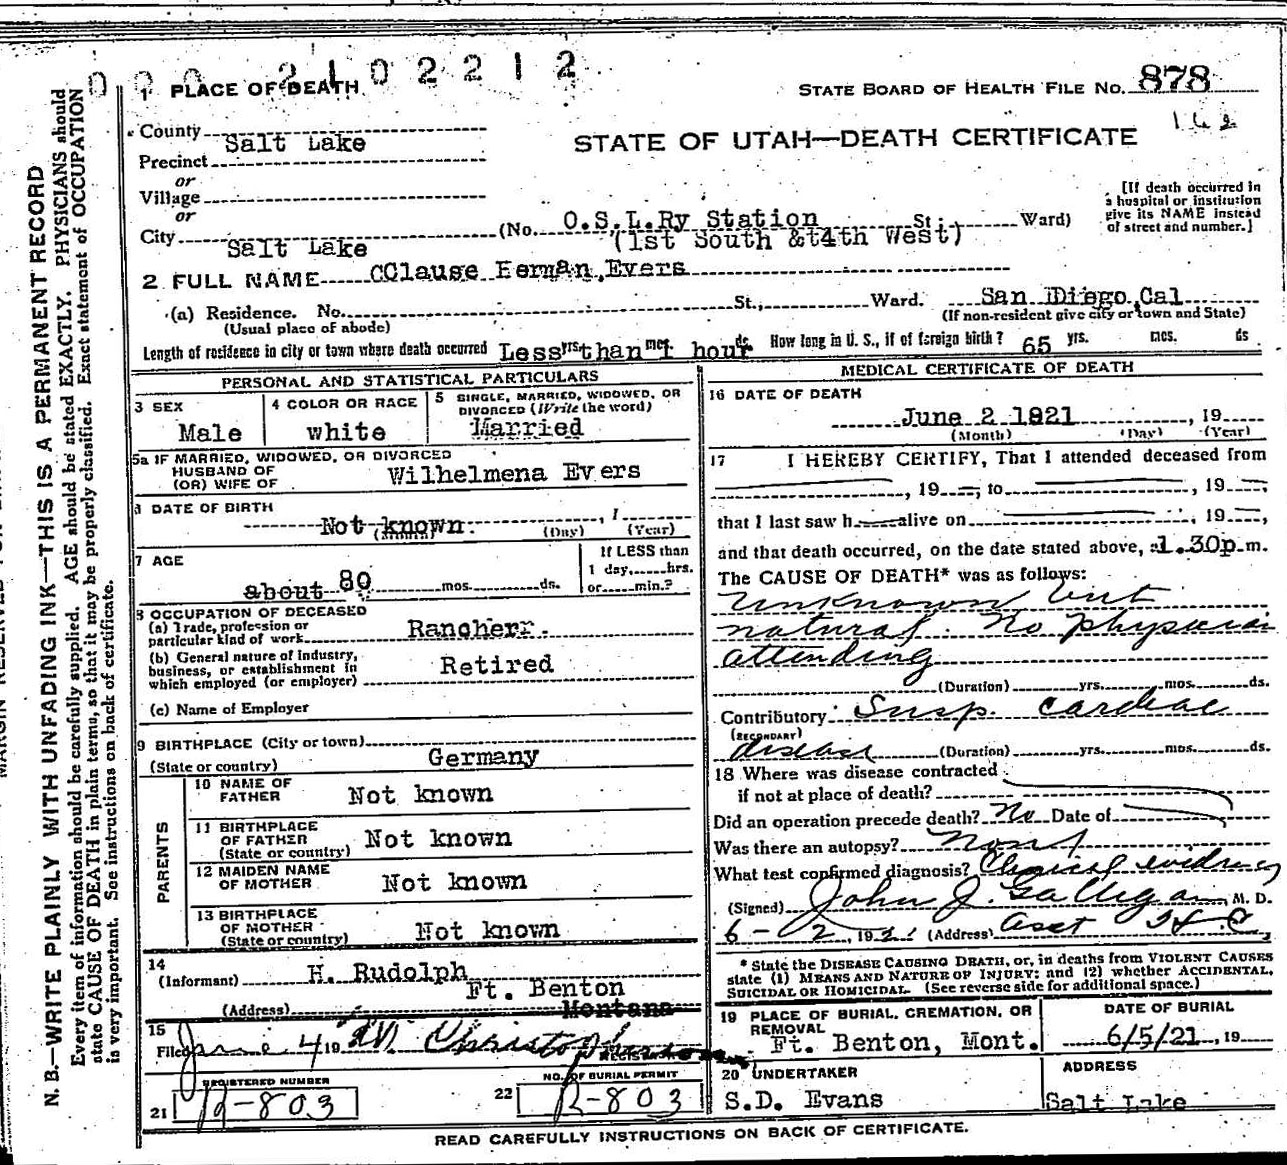 000 2102212
1 PLACE OF DEATH
STATE BOARD OF HEALTH FILE No. 878
162
County Salt Lake
STATE OF UTAH—DEATH CERTIFICATE
Precinct
or
Village
or
City Salt Lake
(No. O.S.L.Ry Station St.; Ward)
(1st South &t4th West)
[If death occurred in
a hospital or institution
give its NAME instead
of street and number.]
2 FULL NAME CClause Herman Evers
(a) Residence. No. St., Ward. San Diego, Cal
(Usual place of abode)
(If non-resident give city or town and State)
Length of residence in city or town where death occurred Less yrs. than mos. 1 hour ds. How long in U. S., if of foreign birth? 65 yrs. mos. ds
PERSONAL AND STATISTICAL PARTICULARS
3 SEX
Male
4 COLOR OR RACE
white
5 SINGLE, MARRIED, WIDOWED, OR
DIVORCED (Write the word)
Married
5a IF MARRIED, WIDOWED, OR DIVORCED
HUSBAND OF
(OR) WIFE OF
Wilhelmena Evers
6 DATE OF BIRTH
Not known.
(Month) (Day) , 1 (Year)
7 AGE
about 80 mos. ds.
If LESS than
1 day, hrs.
or min.?
8 OCCUPATION OF DECEASED
(a) Trade, profession or
particular kind of work Rancherr.
(b) General nature of industry,
business, or establishment in
which employed (or employer)
Retired
(c) Name of Employer
9 BIRTHPLACE (City or town)
(State or country) Germany
PARENTS
10 NAME OF
FATHER Not known
11 BIRTHPLACE
OF FATHER
(State or country) Not known
12 MAIDEN NAME
OF MOTHER Not known
13 BIRTHPLACE
OF MOTHER
(State or country) Not known
14
(Informant) H. Rudolph
Ft. Benton
(Address) Montana
15
Filed June 4 19 Christopherson
REGISTRAR
REGISTERED NUMBER
21 R-803
NO. OF BURIAL PERMIT
22 R-803
MEDICAL CERTIFICATE OF DEATH
16 DATE OF DEATH
June 2 1821 , 19
(Month) (Day) (Year)
17 I HEREBY CERTIFY, That I attended deceased from
, 19 , to , 19 ,
that I last saw h alive on , 19 ,
and that death occurred, on the date stated above, at 1.30p m.
The CAUSE OF DEATH* was as follows:
Unknown but
natural. No physician
attending
(Duration) yrs. mos. ds.
Contributory Susp. cardiac
(SECONDARY)
disease (Duration) yrs. mos. ds.
18 Where was disease contracted
if not at place of death?
Did an operation precede death? No Date of
Was there an autopsy? None
What test confirmed diagnosis? Clinical evidence
(Signed) John J. Galligan, M. D.
6-2, 1921 (Address) Asst H. C.
* State the DISEASE CAUSING DEATH, or, in deaths from VIOLENT CAUSES
state (1) MEANS AND NATURE OF INJURY; and (2) whether ACCIDENTAL,
SUICIDAL OR HOMICIDAL. (See reverse side for additional space.)
19 PLACE OF BURIAL, CREMATION, OR
REMOVAL
Ft. Benton, Mont.
DATE OF BURIAL
6/5/21, 19
20 UNDERTAKER
S.D. Evans
ADDRESS
Salt Lake
READ CAREFULLY INSTRUCTIONS ON BACK OF CERTIFICATE.
N. B.—WRITE PLAINLY WITH UNFADING INK—THIS IS A PERMANENT RECORD
Every item of information should be carefully supplied. AGE should be stated EXACTLY. PHYSICIANS should
state CAUSE OF DEATH in plain terms, so that it may be properly classified. Exact statement of OCCUPATION
is very important. See instructions on back of certificate.